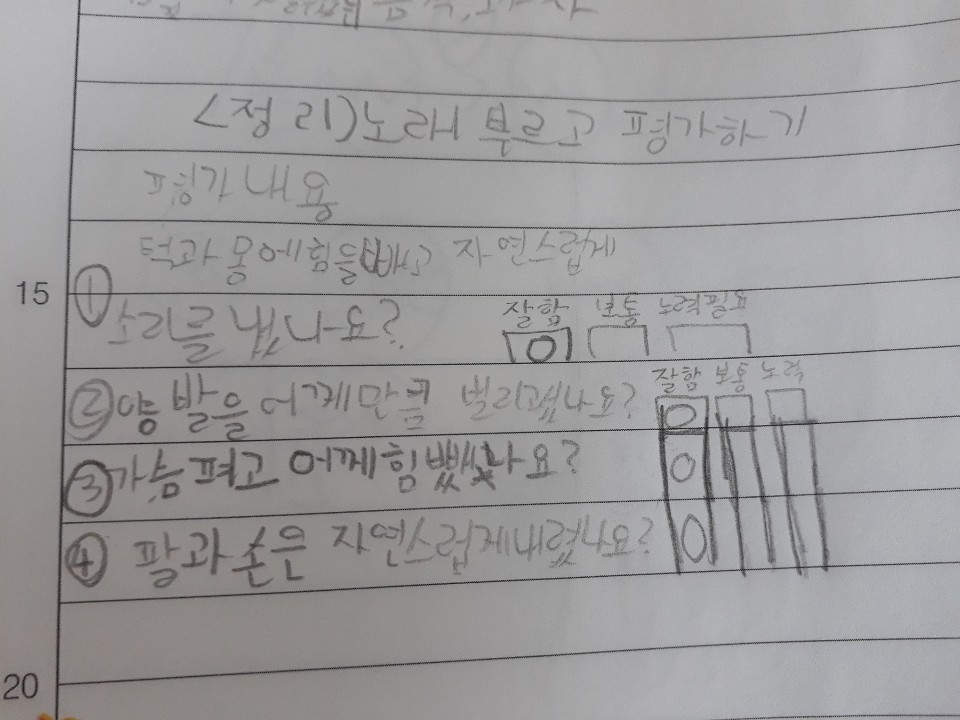 <정리(노래 부르고 평가하기
평가내용
턱과 몸에힘을빼고 자연스럽게
잘함 보통 노력필요
15 ① 소리를 냈나요?
잘함 보통 노력
② 양발을 어께만큼 벌리겠나요?
③ 가슴펴고 어께힘뺐나요?
④ 팔과손은 자연스럽게내렸나요?
20